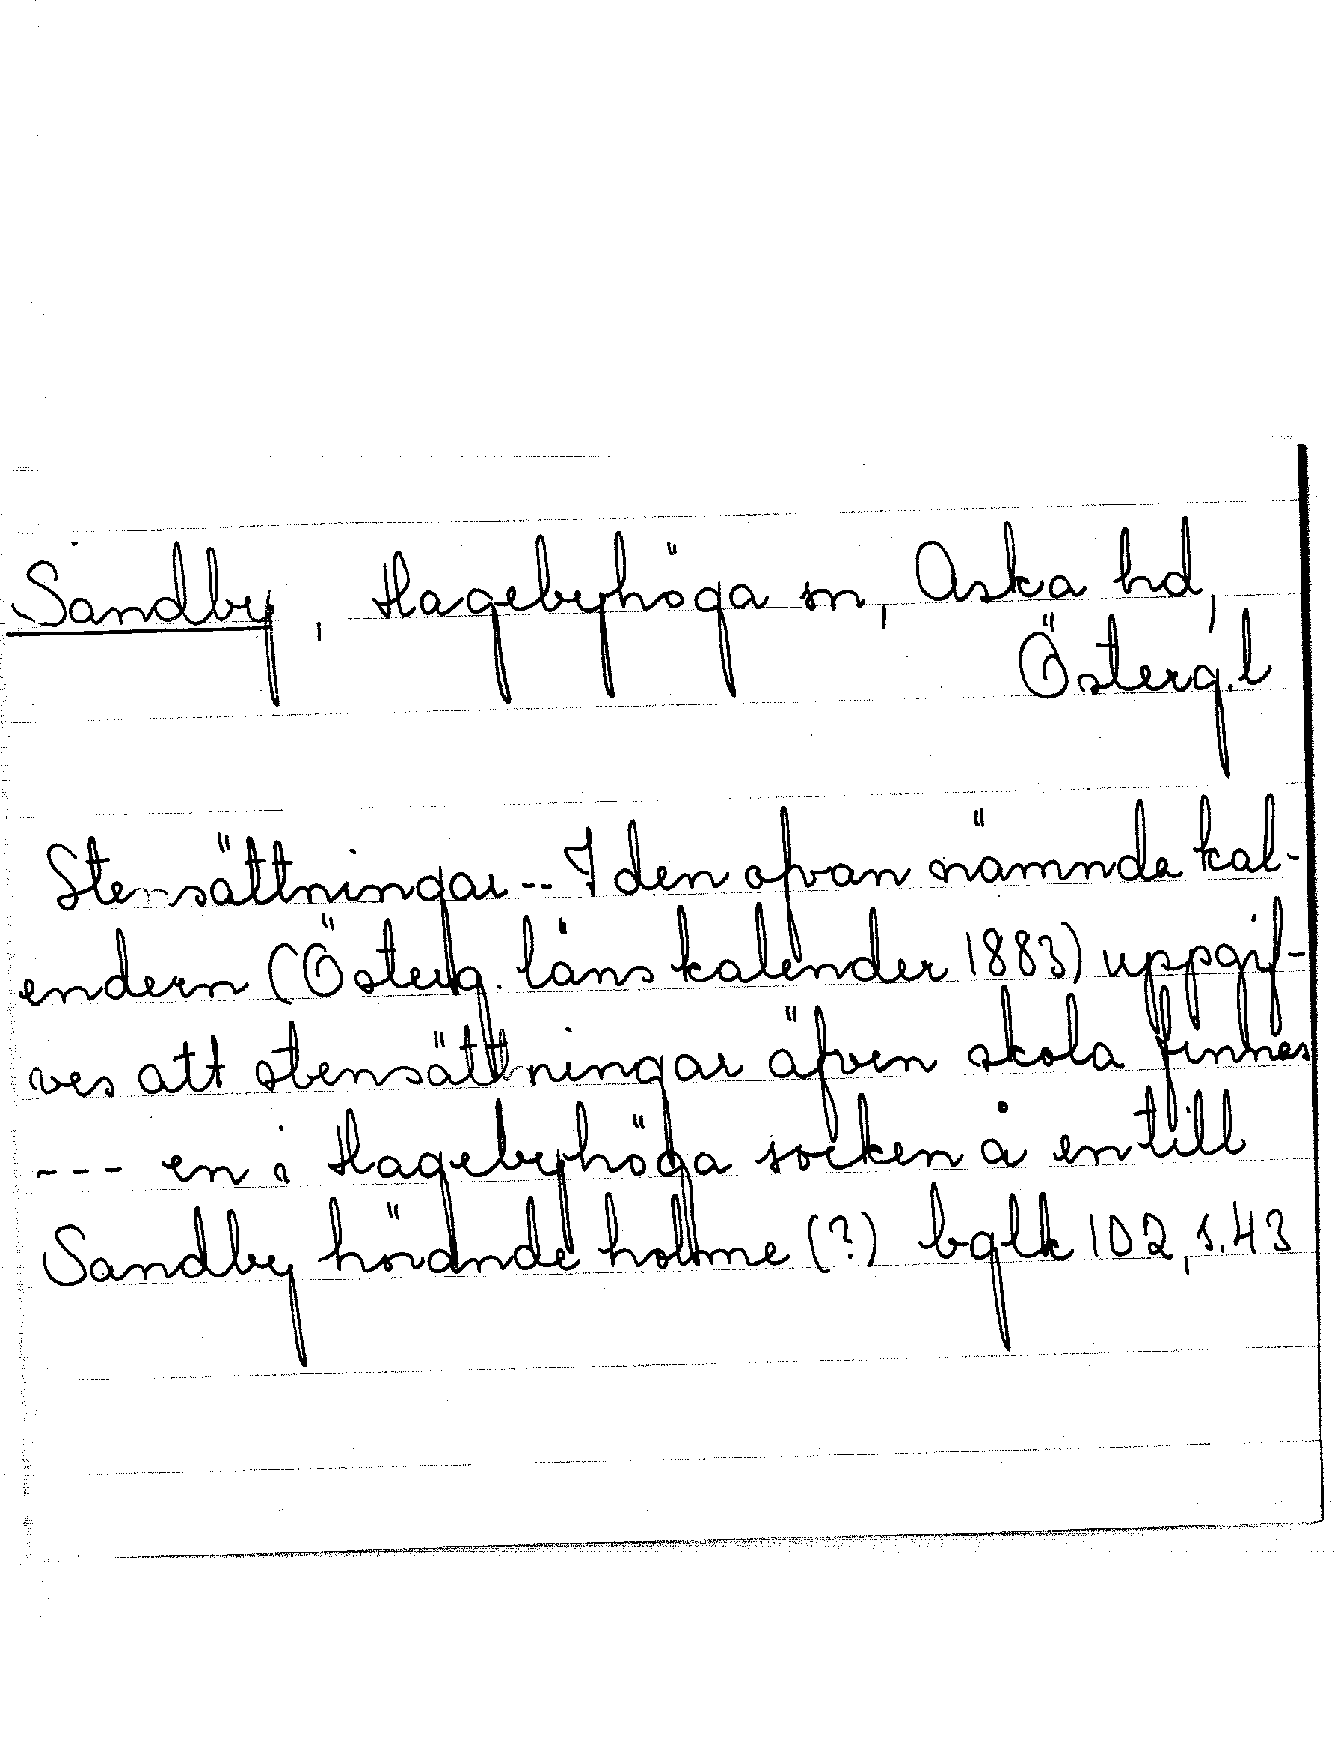 Sandby, Hagebyhöga sn, Aska hd,
Österg.l
Stensättningar -- I den ofvan nämnda kal-
endern (Österg. läns kalender 1883) uppgif-
ves att stensättningar äfven skola finnas
--- en i Hagebyhöga socken å en till
Sandby hörande holme (?) bglk 102, s. 43